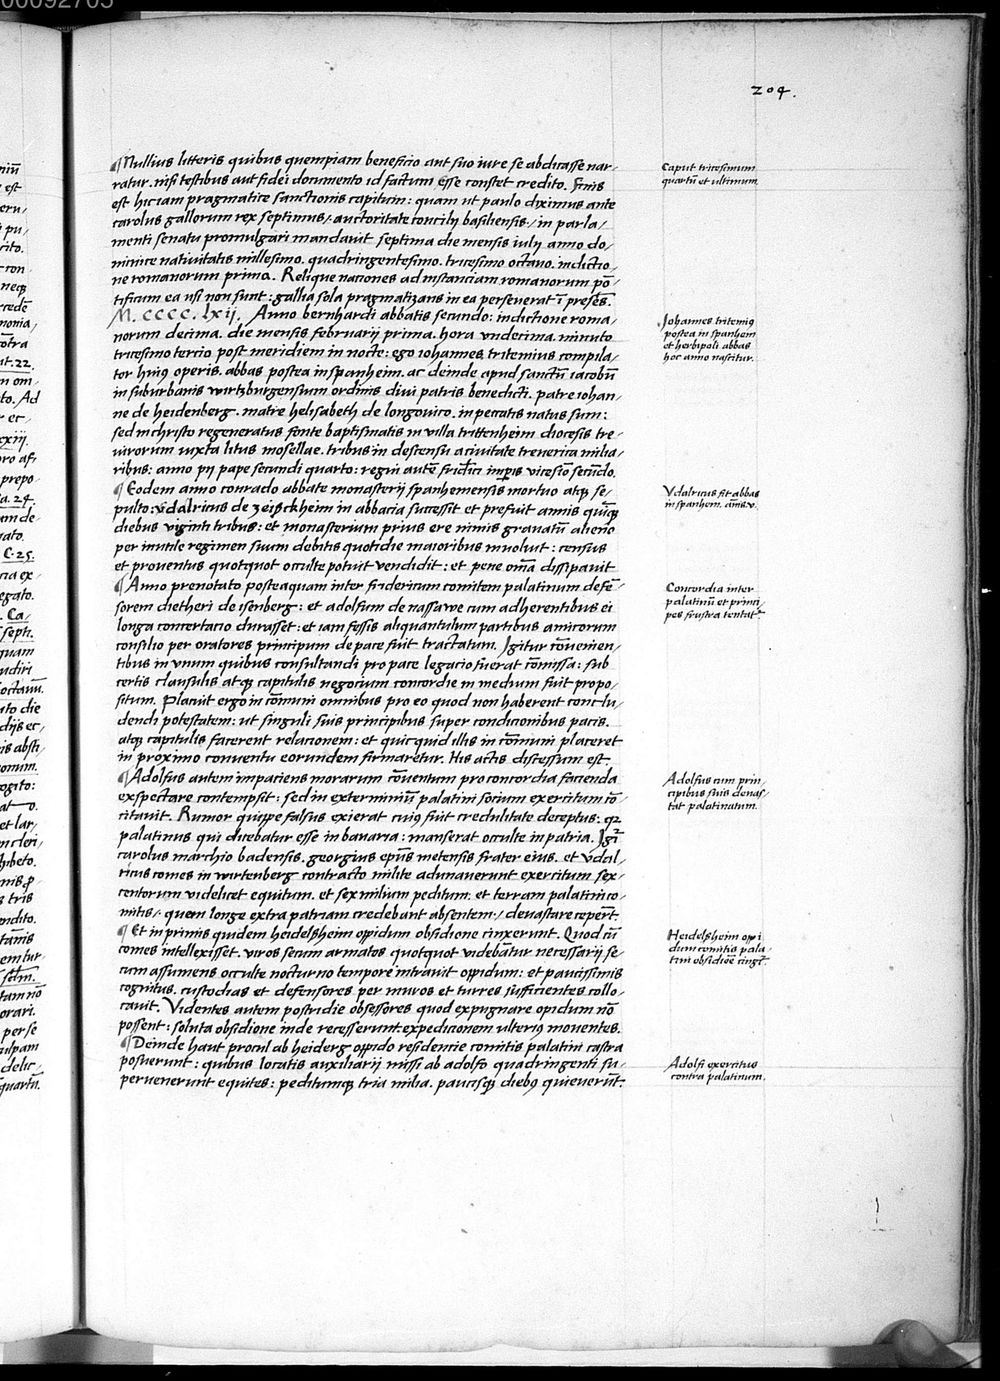 00092705
204.
¶Nullius litteris quibus quempiam beneficio aut suo iure se abdicasse nar-
ratur. nisi testibus aut fidei documento id factum esse constet credito. Finis
est hic iam pragmatice sanctionis capitum: quam ut paulo diximus ante
carolus gallorum rex septimus, auctoritate concilij basiliensis, in parla-
menti senatu promulgari mandavit septima die mensis iulij anno do-
minice nativitatis millesimo. quadringentesimo. tricesimo octavo. indictio-
ne romanorum prima. Relique nationes ad instanciam romanorum pō-
tificum ea usi non sunt: gallia sola pragmatizans in ea perseverat ī presēs.
M. CCCC. lxij. Anno bernhardi abbatis secundo: indictione roma-
norum decima. die mensis februarij prima. hora undecima. minuto
tricesimo tercio post meridiem in nocte: ego iohannes tritemius compila-
tor huiꝰ operis. abbas postea in spanheim. ac deinde apud sanctū iacobū
in suburbanis wirtzburgensium ordinis divi patris benedicti. patre iohan-
ne de heidenberg. matre helisabeth de longovico. in peccatis natus sum:
sed in christo regeneratus fonte baptismatis in villa trittenheim diocesis tre-
virorum iuxta litus mosellae. tribus in descensu a civitate treverica milia-
ribus: anno pij pape secundi quarto: regni autē fridēci impīs vicesīo secūdo.
¶Eodem anno conrado abbate monasterij spanhemensis mortuo atqꝫ se-
pulto: vdalricus de zeisckheim in abbacia successit et prefuit annis quīqꝫ
diebus viginti tribus: et monasterium prius ere nimis gravatū alieno
per inutile regimen suum debitis quotidie maioribus involvit: census
et proventus quotquot occulte potuit vendidit: et pene oīna dissipavit
¶Anno prenotato posteaquam inter fridericum comitem palatinum defē-
sorem dietheri de isenberg: et adolfum de nassawe cum adherentibus ei
longa concertacio durasset: et iam fessis aliquantulum partibus amicorum
consilio per oratores principum de pace fuit tractatum. Igitur cōvenien-
tibus in unum quibus consultandi pro pace legacio fuerat cōmissa: sub
certis clausulis atqꝫ capitulis negocium concordie in medium fuit propo-
situm. Placuit ergo in cōmuni omnibus pro eo quod non haberent conclu-
dendi potestatem: ut singuli suis principibus super condicionibus pacis.
atqꝫ capitulis facerent relacionem: et quicquid illis in cōmuni placeret
in proximo conventu eorundem firmaretur. His actis discessum est.
¶Adolfus autem impaciens morarum cōventum pro concordia facienda
exspectare contempsit: sed in exterminiū palatini socium exercitum cō-
citavit. Rumor quippe falsus exierat cuiꝰ fuit credulitate deceptus: qꝫ
palatinus qui dicebatur esse in bavaria: manserat occulte in patria. Igīt
carolus marchio badensis. georgius epūs metensis frater eius. et vdal-
ricus comes in wirtenberg contracto milite adunaverunt exercitum sex-
centorum videlicet equitum. et sex milium peditum: et terram palatini co-
mitis, quem longe extra patriam credebant absentem, devastare cepērt.
¶Et in primis quidem heidelszheim opidum obsidione cinxerunt. Quod cū
comes intellexisset. viros secum armatos quotquot videbātur necessarij se-
cum assumens occulte nocturno tempore intravit oppidum: et paucissimis
cognitus. custodias et defensores per muros et turres sufficientes collo-
cavit. Videntes autem postridie obsessores quod expugnare opidum nō
possent: soluta obsidione inde recesserunt expedicionem ulteriꝰ moventes.
¶Deinde haut procul ab heiderg oppido residencie comitis palatini castra
posuerunt: quibus locatis auxiliarij missi ab adolfo quadringenti su-
pervenerunt equites: peditumqꝫ tria milia. paucisqꝫ diebꝰ quieverūt.
Caput tricesimum
quartū et ultimum
Johannes tritemiꝰ
postea in spanhem
et herbipoli abbas
hoc anno nascitur.
Vdalricus fit abbas
in spanhem. annis .v.
Concordia inter
palatinū et princi-
pes frustra tentatᵘʳ
Adolfus cum prin-
cipibus suis devas-
tat palatinatum.
Heidelszheim oppi
dum comitis pala-
tini obsidiōe cingitᵘʳ
Adolfi exercitus
contra palatinum.